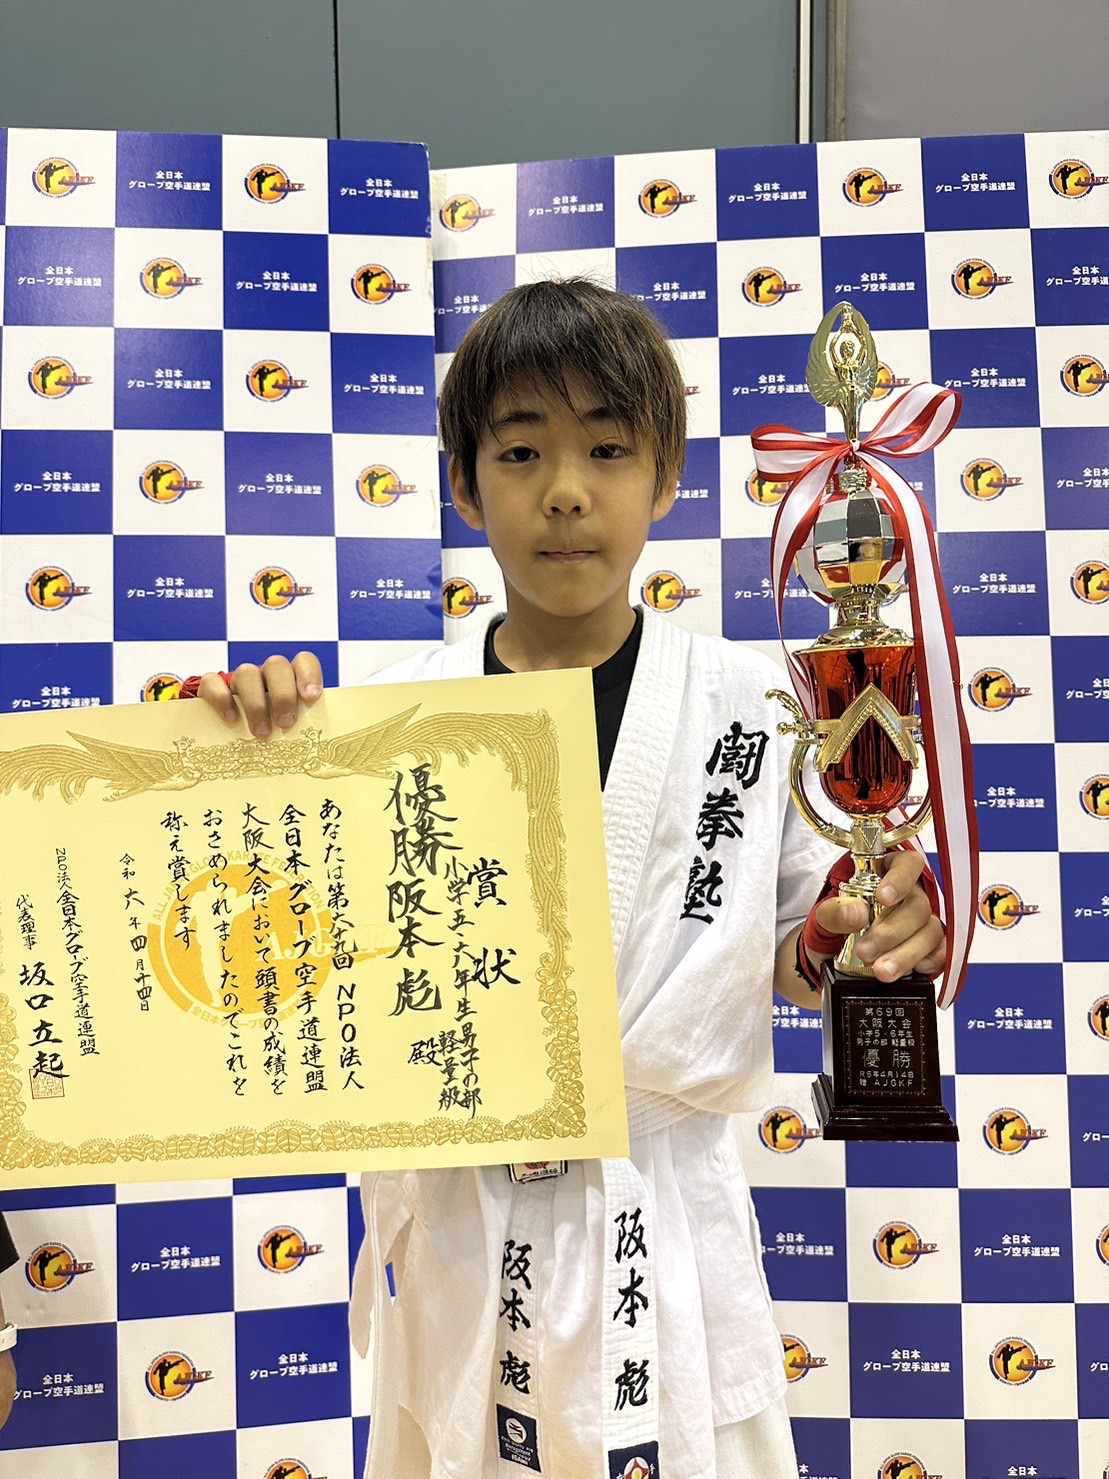 全日本
グローブ空手道連盟
AJGKF
賞状
小学五・六年生男子の部
軽量級
優勝 阪本彪 殿
あなたは第六十九回NPO法人
全日本グローブ空手道連盟
大阪大会において頭書の成績を
おさめられましたのでこれを
称え賞します
令和六年四月十四日
NPO法人全日本グローブ空手道連盟
代表理事 坂口立起
闘拳塾
第69回
大阪大会
小学5・6年生
男子の部 軽量級
優勝
R6年4月14日
贈 AJGKF
阪本彪
阪本彪